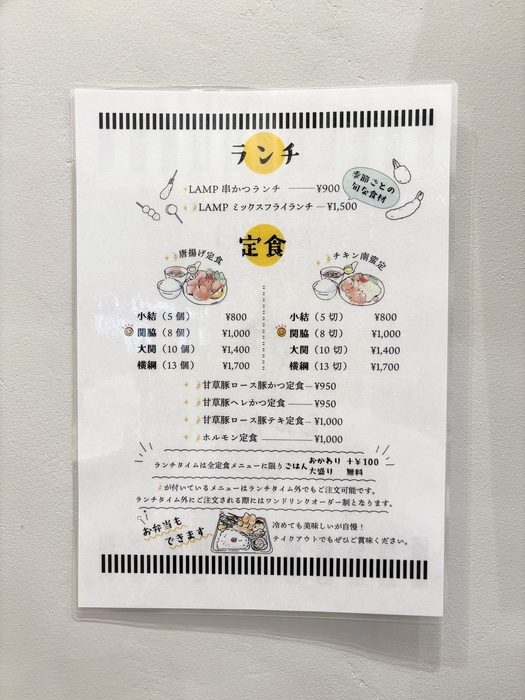 ランチ
LAMP 串かつランチ ¥900
LAMP ミックスフライランチ ¥1,500
季節ごとの
旬な食材
定食
唐揚げ定食
小結（5 個） ¥800
関脇（8 個） ¥1,000
大関（10 個） ¥1,400
横綱（13 個） ¥1,700
チキン南蛮定
小結（5 切） ¥800
関脇（8 切） ¥1,000
大関（10 切） ¥1,400
横綱（13 切） ¥1,700
甘草豚ロース豚かつ定食 ¥950
甘草豚ヘレかつ定食 ¥950
甘草豚ロース豚テキ定食 ¥1,000
ホルモン定食 ¥1,000
ランチタイムは全定食メニューに限りごはん おかわり +¥100
大盛り 無料
が付いているメニューはランチタイム外でもご注文可能です。
ランチタイム外にご注文される際にはワンドリンクオーダー制となります。
お弁当も
できます
冷めても美味しいが自慢！
テイクアウトでもぜひご賞味ください。